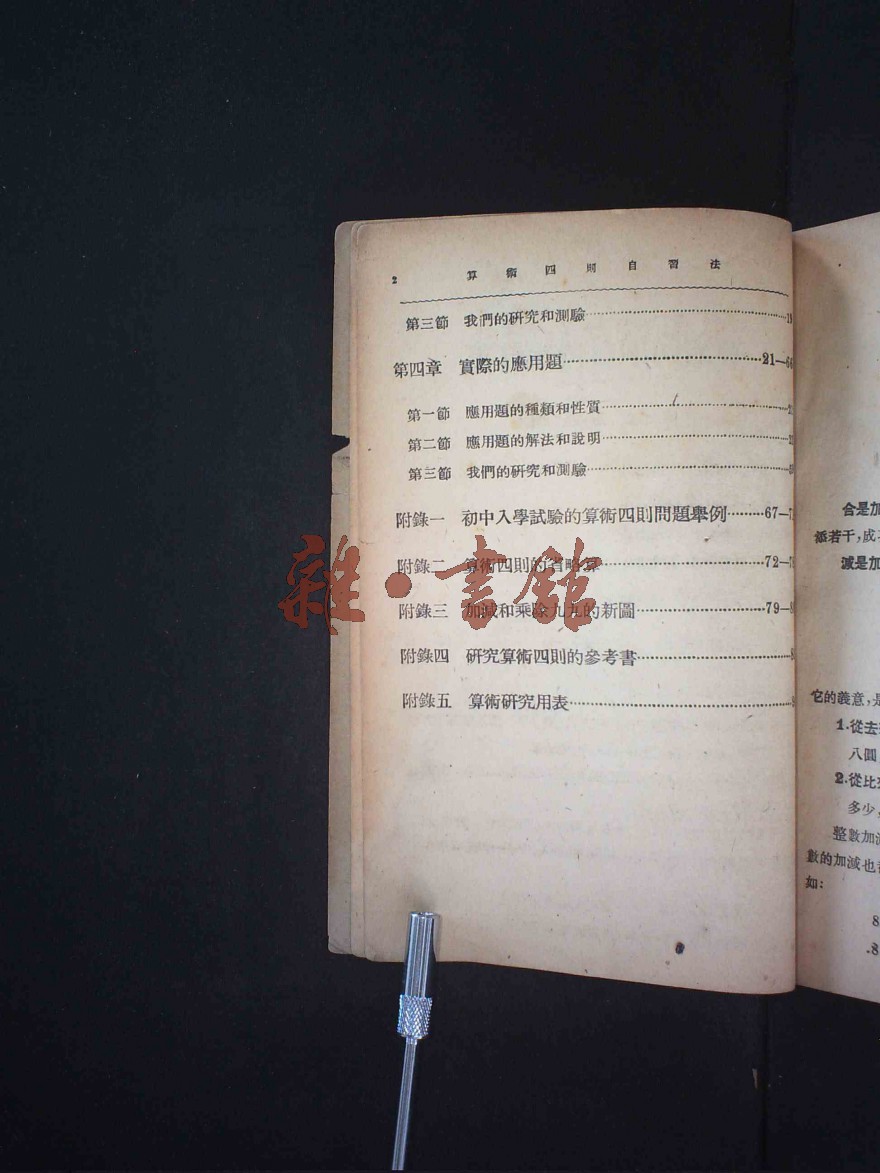 2 算術四則自習法
第三節 我們的研究和測驗
第四章 實際的應用題 21—66
第一節 應用題的種類和性質
第二節 應用題的解法和說明
第三節 我們的研究和測驗
附錄一 初中入學試驗的算術四則問題舉例 67—7
附錄二 算術四則的省略算 72—7
附錄三 加減和乘除九九的新圖 79—8
附錄四 研究算術四則的參考書
附錄五 算術研究用表
雜·書館
合是加
添若干,成
減是加
它的義意,是
1.從去
八圓
2.從比
多少,
整數加減
數的加減也
如:
8
.8